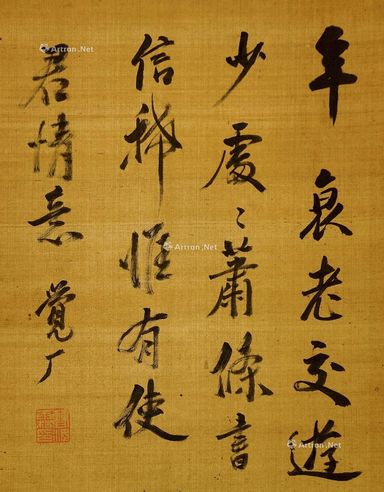 年衰老交遊
少處〻蕭條書
信稀惟有使
君情意 覺厂
Artron.Net
Artron.Net
Artron.Net
Artron.Net